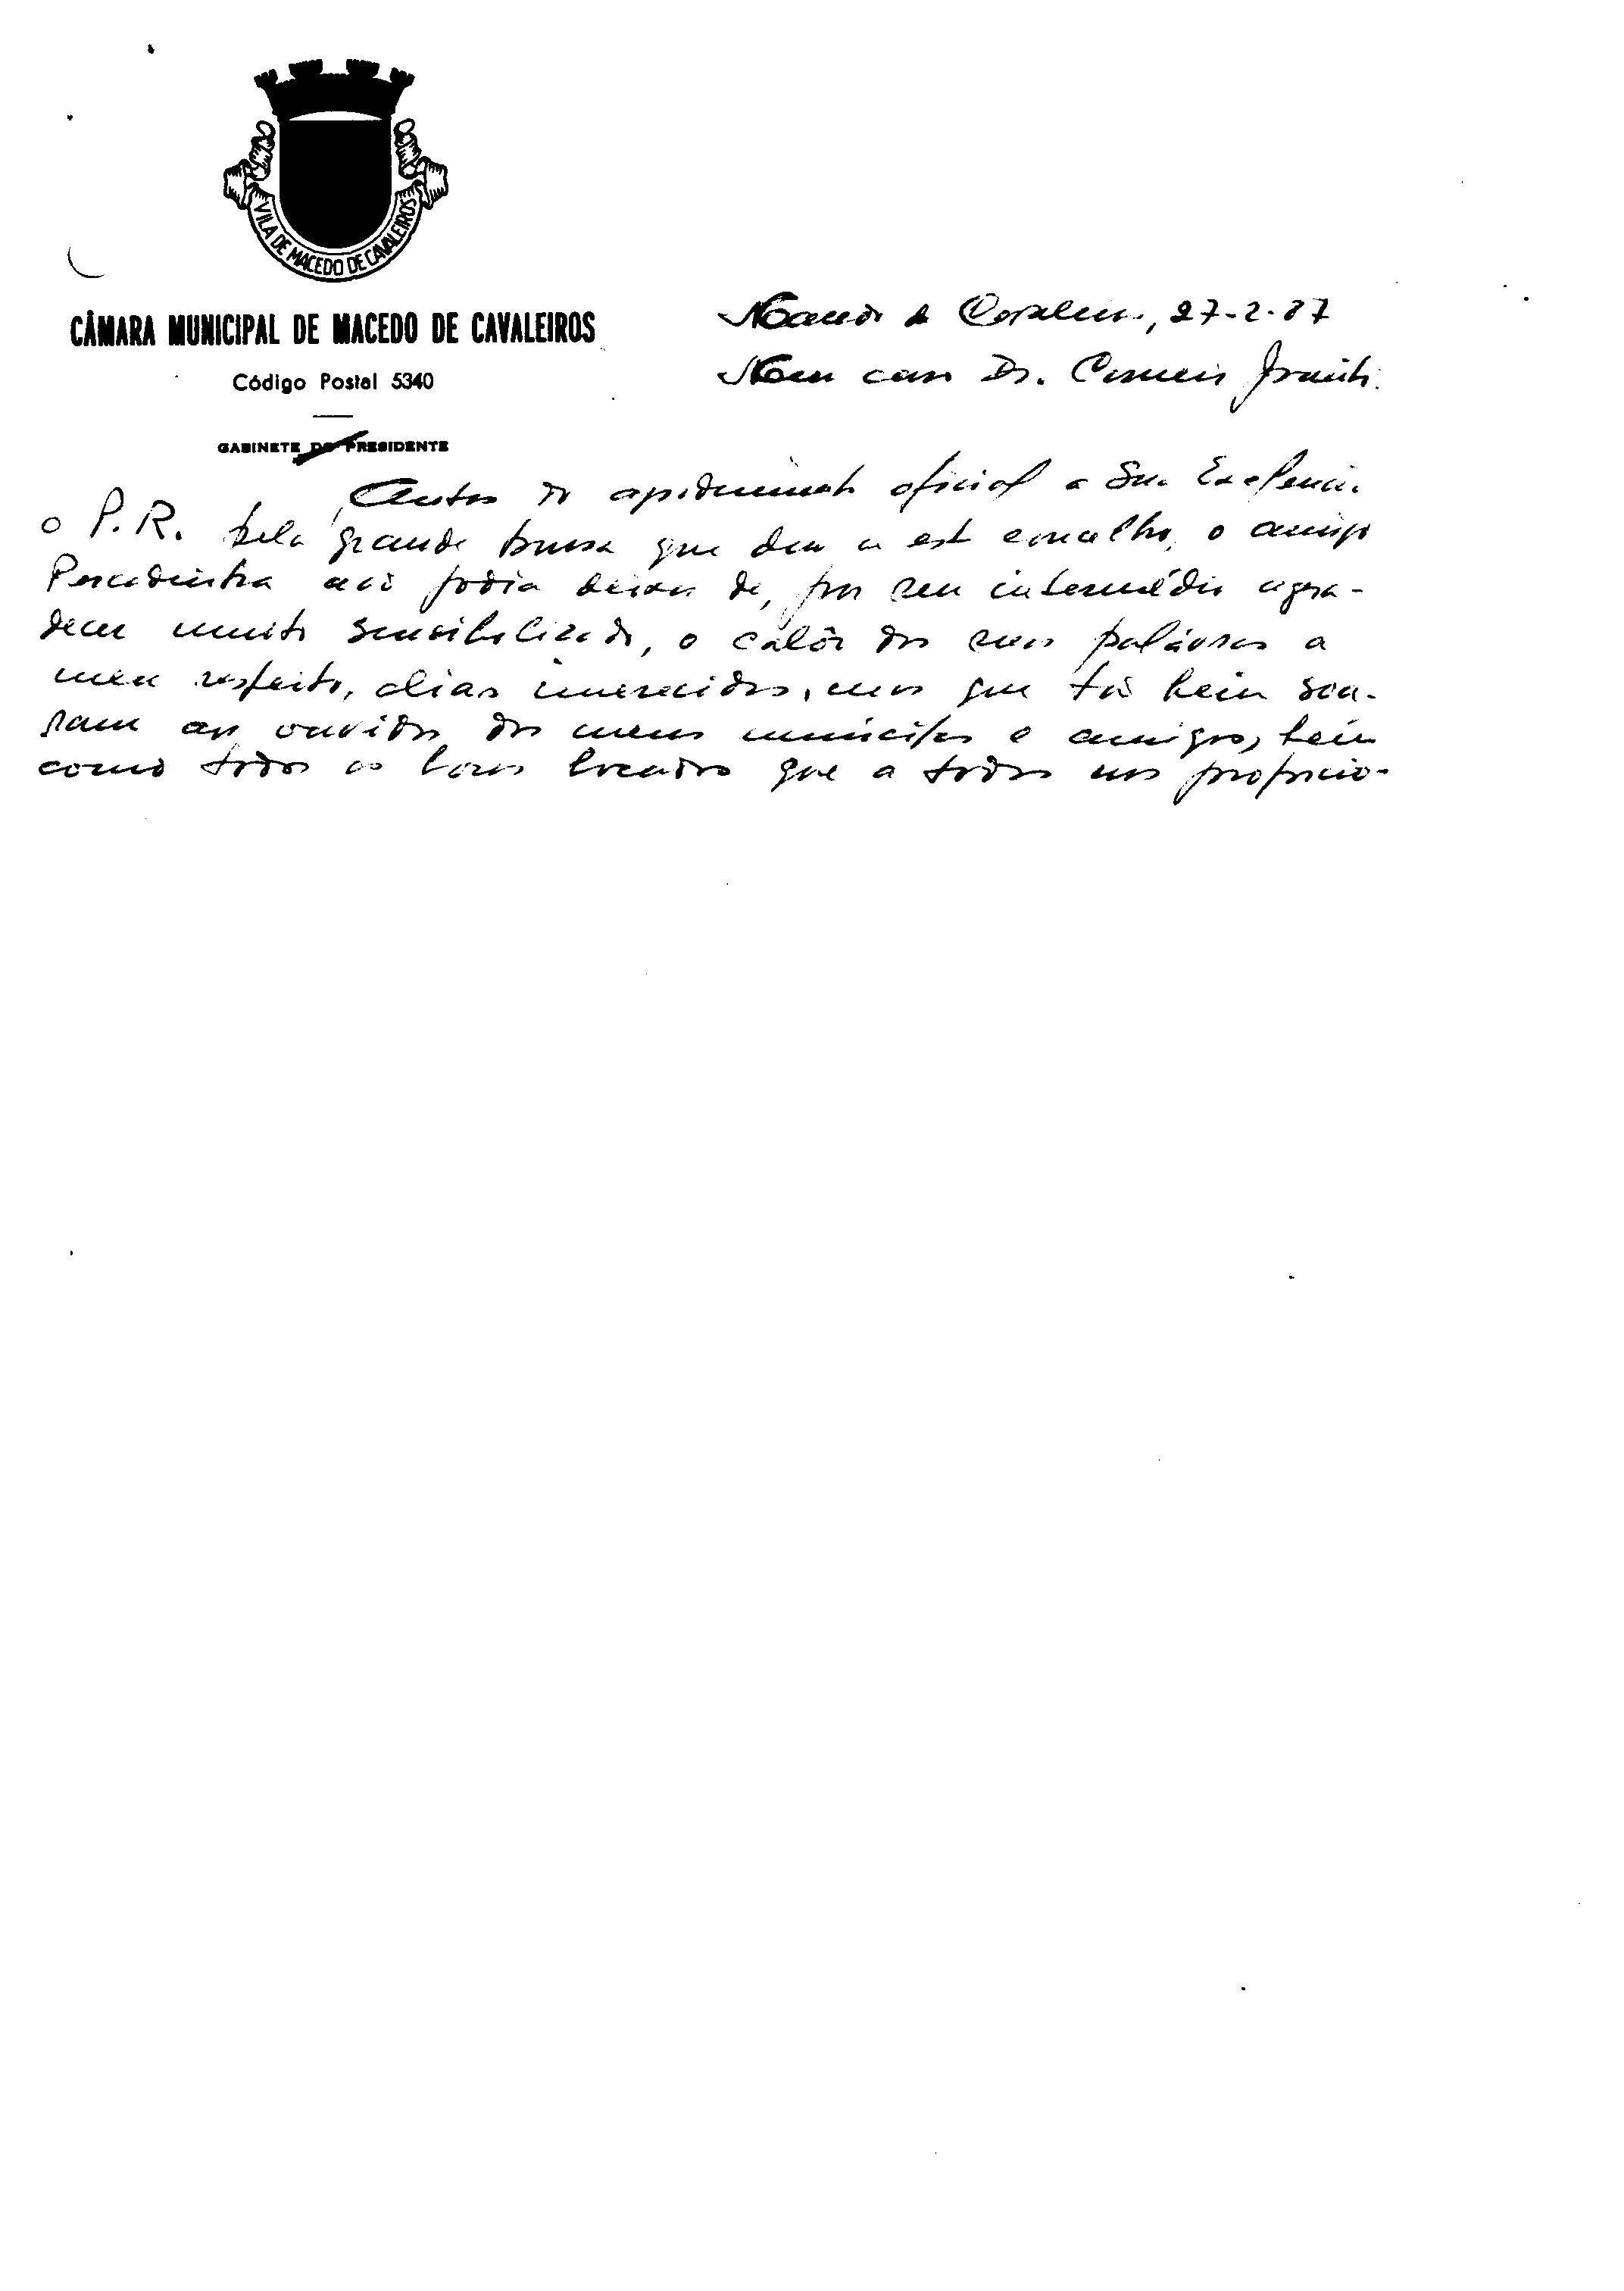 VILA DE MACEDO DE CAVALEIROS
CÂMARA MUNICIPAL DE MACEDO DE CAVALEIROS
Código Postal 5340
GABINETE DO PRESIDENTE
Macedo de Cavaleiros, 27-2-87
Meu caro Dr.
Antes do agradecimento oficial a Sua Excelência
o P.R. pela grande que deu a este concelho, o amigo
não podia deixar de, por seu intermédio agra-
decer muito sensibilizado, o calôr das suas palávras a
meu respeito, aliás imerecidas, mas que tão bem soa-
ram aos ouvidos dos meus munícipes e amigos, bem
como todos os bons bocados que a todos nos proporcio-